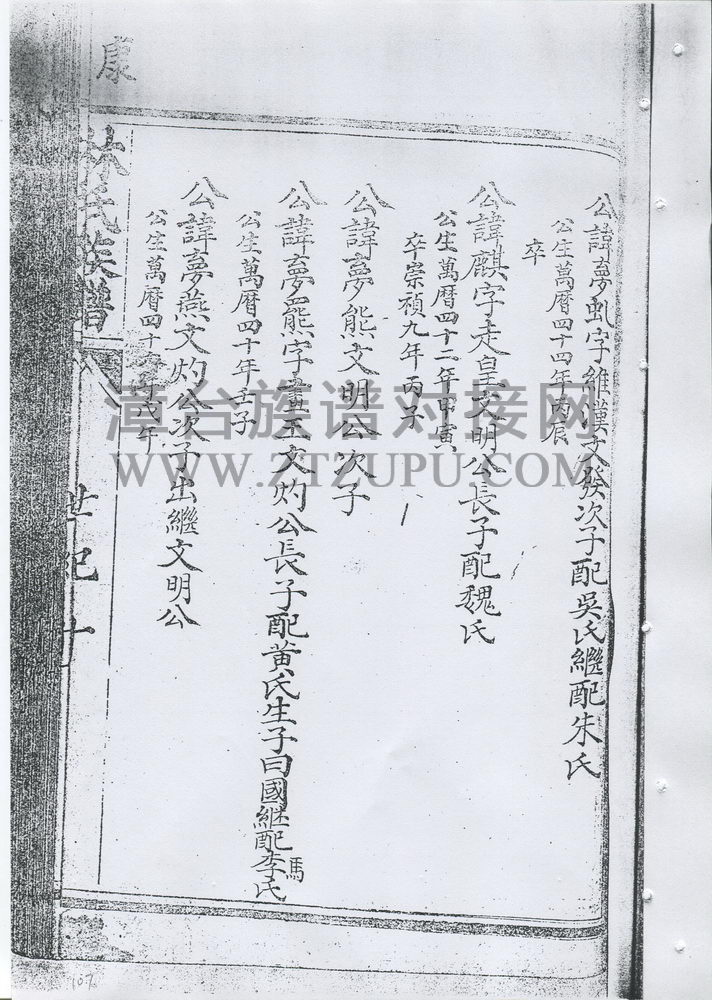 公諱夢虬字維漢文發次子配吳氏繼配朱氏
公生萬曆四十四年丙辰
卒
公諱麒字走皇文明公長子配魏氏
公生萬曆四十二年甲寅
卒崇禎九年丙子
公諱夢熊文明公次子
公諱夢羆字王文灼公長子配黃氏生子曰國継配李氏
馬
公生萬曆四十年壬子
公諱夢燕文灼公次子出繼文明公
公生萬曆四十年戊午
林氏族譜
世紀十
康
漳台族谱对接网
WWW.ZTZUPU.COM
107